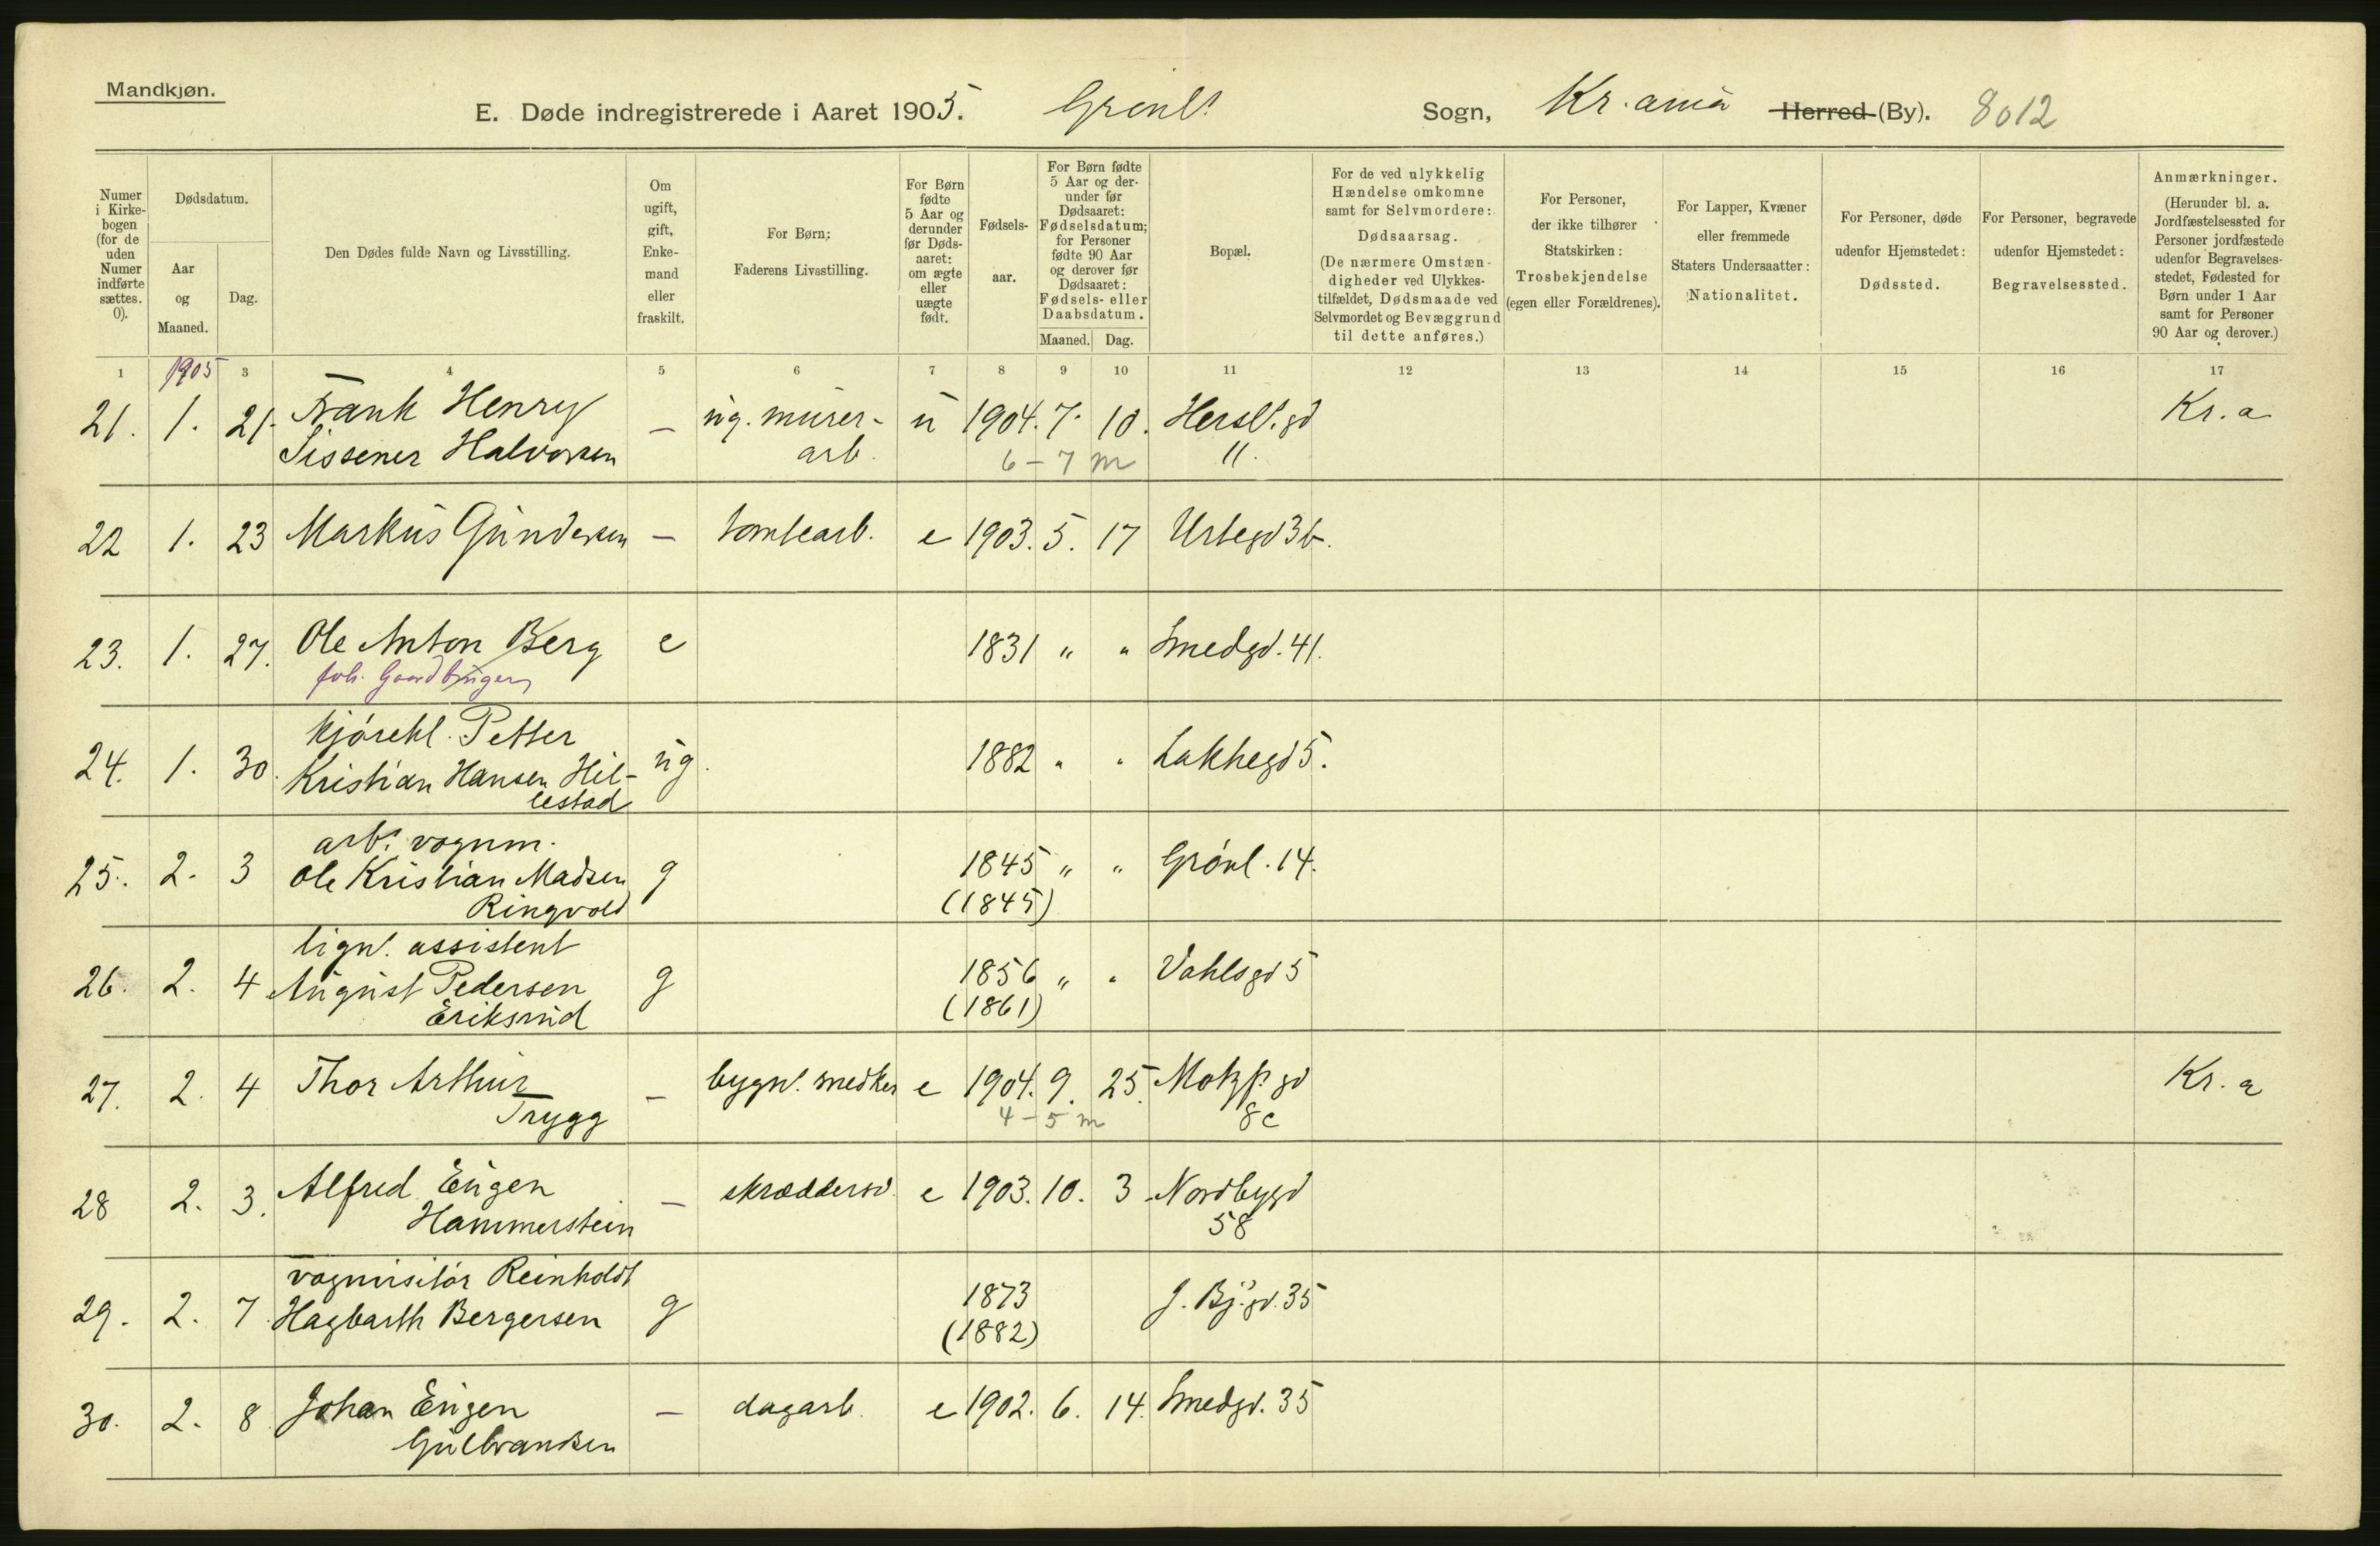 Mandkjøn.
E. Døde indregistrerede i Aaret 1905. Grønl. Sogn, Kr.ania Herred (By). 8012
Numer i Kirkebogen (for de uden Numer indførte sættes. 0).
Dødsdatum.
Aar og Maaned.
Dag.
Den Dødes fulde Navn og Livsstilling.
Om ugift, gift, Enkemand eller fraskilt.
For Børn: Faderens Livsstilling.
For Børn fødte 5 Aar og derunder før Dødsaaret: om ægte eller uægte født.
Fødselsaar.
For Børn fødte 5 Aar og derunder før Dødsaaret: Fødselsdatum; for Personer fødte 90 Aar og derover før Dødsaaret: Fødsels- eller Daabsdatum.
Maaned. Dag.
Bopæl.
For de ved ulykkelig Hændelse omkomne samt for Selvmordere: Dødsaarsag. (De nærmere Omstændigheder ved Ulykkestilfældet, Dødsmaade ved Selvmordet og Bevæggrund til dette anføres.)
For Personer, der ikke tilhører Statskirken: Trosbekjendelse (egen eller Forældrenes).
For Lapper, Kvæner eller fremmede Staters Undersaatter: Nationalitet.
For Personer, døde udenfor Hjemstedet: Dødssted.
For Personer, begravede udenfor Hjemstedet: Begravelsessted.
Anmærkninger. (Herunder bl. a. Jordfæstelsessted for Personer jordfæstede udenfor Begravelsesstedet, Fødested for Børn under 1 Aar samt for Personer 90 Aar og derover.)
1 1905 3 4 5 6 7 8 9 10 11 12 13 14 15 16 17
21. 1. 21. Frank Henry — ug. murer- u 1904. 7. 10. Hersl. gd Kr. a
Sissener Halvorsen arb. 6 – 7 m 11.
22 1. 23 Markus Gundersen — tomtearb. e 1903. 5. 17 Urtegd 3b.
23. 1. 27. Ole Anton Berg e 1831 " " Smedgd. 41.
foh. Gaardbruger
24. 1. 30. kjørekl. Petter ug. 1882 " " Lakkegd 5.
Kristian Hansen Hil-
lestad
25. 2. 3 arb. vognm. g 1845 " " Grønl. 14.
Ole Kristian Madsen (1845)
Ringvold
26. 2. 4 lign. assistent g 1856 " " Vahlsgd 5
August Pedersen (1861)
Eriksrud
27. 2. 4 Thor Arthur — bygn. snedker e 1904. 9. 25. Motzf. gd Kr. a
Trygg 4 – 5 m 8c
28 2. 3. Alfred Eugen — skræddersv. e 1903. 10. 3 Nordbygd
Hammerstein 58
29. 2. 7 vognvisitør Reinholdt g 1873 J. Bj. gd. 35
Hagbarth Bergersen (1882)
30. 2. 8 Johan Eugen — dagarb. e 1902. 6. 14. Smedgd. 35
Gulbrandsen